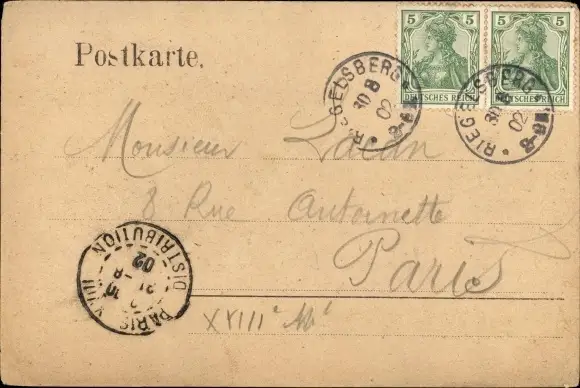 5 5
DEUTSCHES REICH DEUTSCHES REICH
Postkarte.
RIEGELSBERG 30 8 02
RIEGELSBERG 30 8 02
Monsieur
8 Rue Antoinette
Paris
XVIII
PARIS XVIII DISTRIBUTION
02